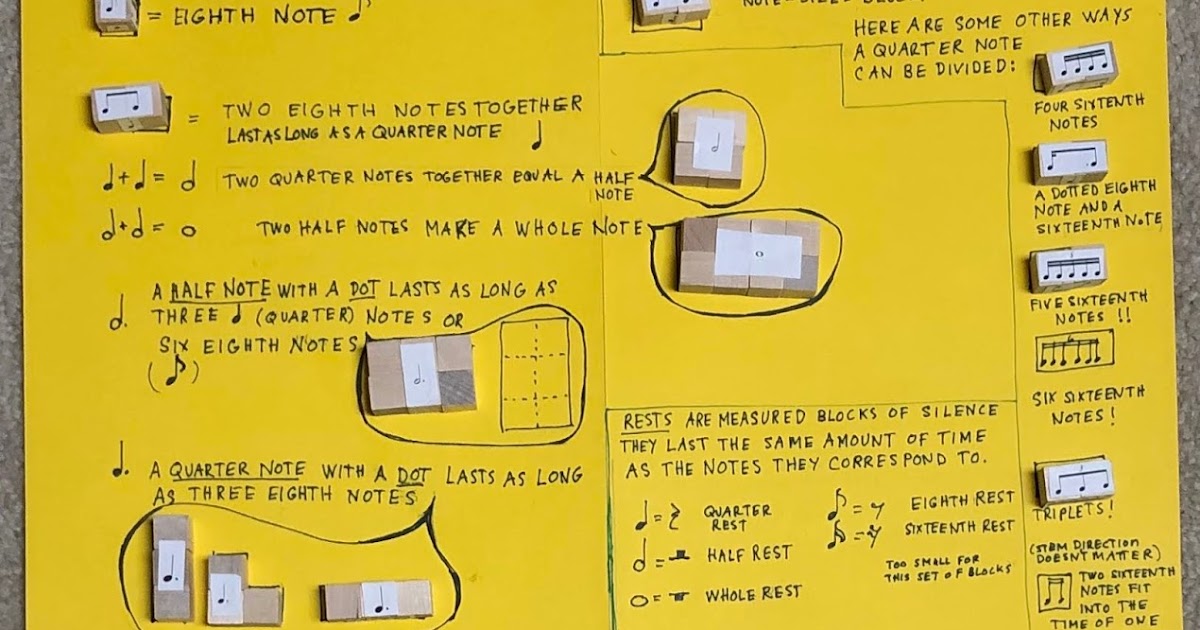 = EIGHTH NOTE ♪
= TWO EIGHTH NOTES TOGETHER
LAST AS LONG AS A QUARTER NOTE ♩
♩+♩= 𝅗𝅥 TWO QUARTER NOTES TOGETHER EQUAL A HALF
NOTE
𝅗𝅥+𝅗𝅥= o TWO HALF NOTES MAKE A WHOLE NOTE
𝅗𝅥. A HALF NOTE WITH A DOT LASTS AS LONG AS
THREE ♩ (QUARTER) NOTES OR
SIX EIGHTH NOTES
(♪)
♩. A QUARTER NOTE WITH A DOT LASTS AS LONG
AS THREE EIGHTH NOTES
HERE ARE SOME OTHER WAYS
A QUARTER NOTE
CAN BE DIVIDED:
FOUR SIXTENTH
NOTES
A DOTTED EIGHTH
NOTE AND A
SIXTEENTH NOTE
FIVE SIXTEENTH
NOTES !!
SIX SIXTEENTH
NOTES!
TRIPLETS!
(STEM DIRECTION
DOESNT MATTER)
TWO SIXTEENTH
NOTES FIT
INTO THE
TIME OF ONE
RESTS ARE MEASURED BLOCKS OF SILENCE
THEY LAST THE SAME AMOUNT OF TIME
AS THE NOTES THEY CORRESPOND TO.
♩= 𝄽 QUARTER
REST
𝅗𝅥= 𝄼 HALF REST
o= 𝄻 WHOLE REST
♪= 𝄾 EIGHTH REST
𝅘𝅥𝅯= 𝄿 SIXTEENTH REST
TOO SMALL FOR
THIS SET OF BLOCKS